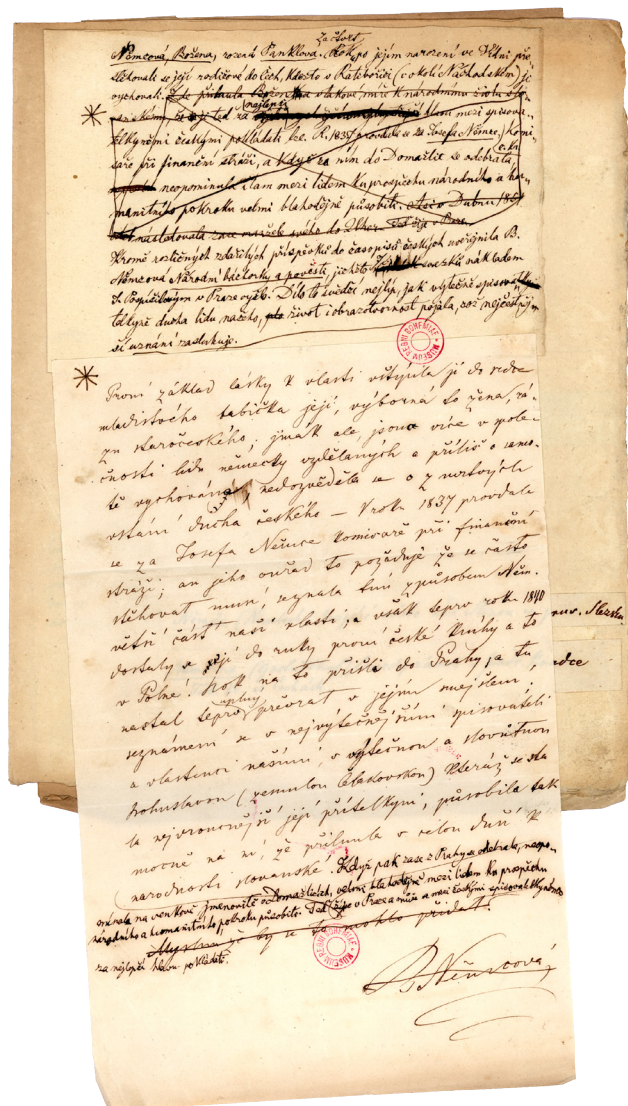 začtvrt
Němcová, Božena, rozená Panklova. Rok po jejím narození ve Vídni pře-
stěhovali se její rodičové do Čech, kdežto v Ratibořici (v okolí Náchodském) ji
vychovali. Zde přilnula Božena vlakově, míře k národnímu životu slo-
vanském, že ji teď za
nejlepší
hlavu mezi spisova-
telkyněmi českými pokládati lze. R. 1837 provdala se za Josefa Němce, komi-
saře při finanční stráži, a když za ním do Domažlic se odebrala,
neopominula i tam mezi lidem ku prospěchu národního a hu-
manitního pokroku velmi blahodějně působiti.
následovala zase manžela svého do Uher. Teď žije v Praze.
Kromě rozličných zdařilých příspěvků do časopisů českých uveřejnila B.
Němcová Národní báchorky a pověsti, jichžto svazků nákladem
J. Pospíšilovým v Praze vyšlo. Dílo to svědčí nejlíp, jak výtečně spisovatel-
telkyně ducha lidu našeho, život i obrazotvornost pojala, což nejčestněj-
ší uznání zasluhuje.
MUSEUM REGNI BOHEMIAE
První základ lásky k vlasti vštípila jí do srdce
mladistvého babička její, výborná to žena, rá-
zu staročeského; jinák ale, jsouc více v spole-
čnosti lidu německy vzdělaných a příliš o samo-
tě vychována, nedozvěděla se o z mrtvých
vstání ducha českého – V roku 1837 provdala
se za Josefa Němce komisaře při finanční
stráži; an jeho ouřad to požaduje že se často
stěhovat musí, seznala tím způsobem Něm.
větší část naší vlasti, a však teprv roku 1840
dostaly se jí do ruky první české knihy a to
v Polné. Rok na to přišli do Prahy, a tu
nastal teprv úplný převrat v jejím smejšlení;
seznámení se s nejvýtečnějšími spisovateli
a vlastenci našimi, s výtečnou a slovutnou
Bohuslavou (zesnulou Čelakovskou) kteráž se sta-
la nejvroucnější její přítelkyní, působila tak
mocně na ni, že přilnula s celou duší k
národnosti slovanské. Když pak zase z Prahy se odebrala, neopo-
minula na venkově jmenovitě v Domažlicích, velmi blahodějně mezi lidem ku prospěchu
národního a humanitního pokroku působiti. Teď žije v Praze a může se mezi českými spisovatelkyněmi
Myslím že by se to mohlo přidat.
za nejlepší hlavu pokládati.
MUSEUM REGNI BOHEMIAE
B Němcová
nuv. Slezsku